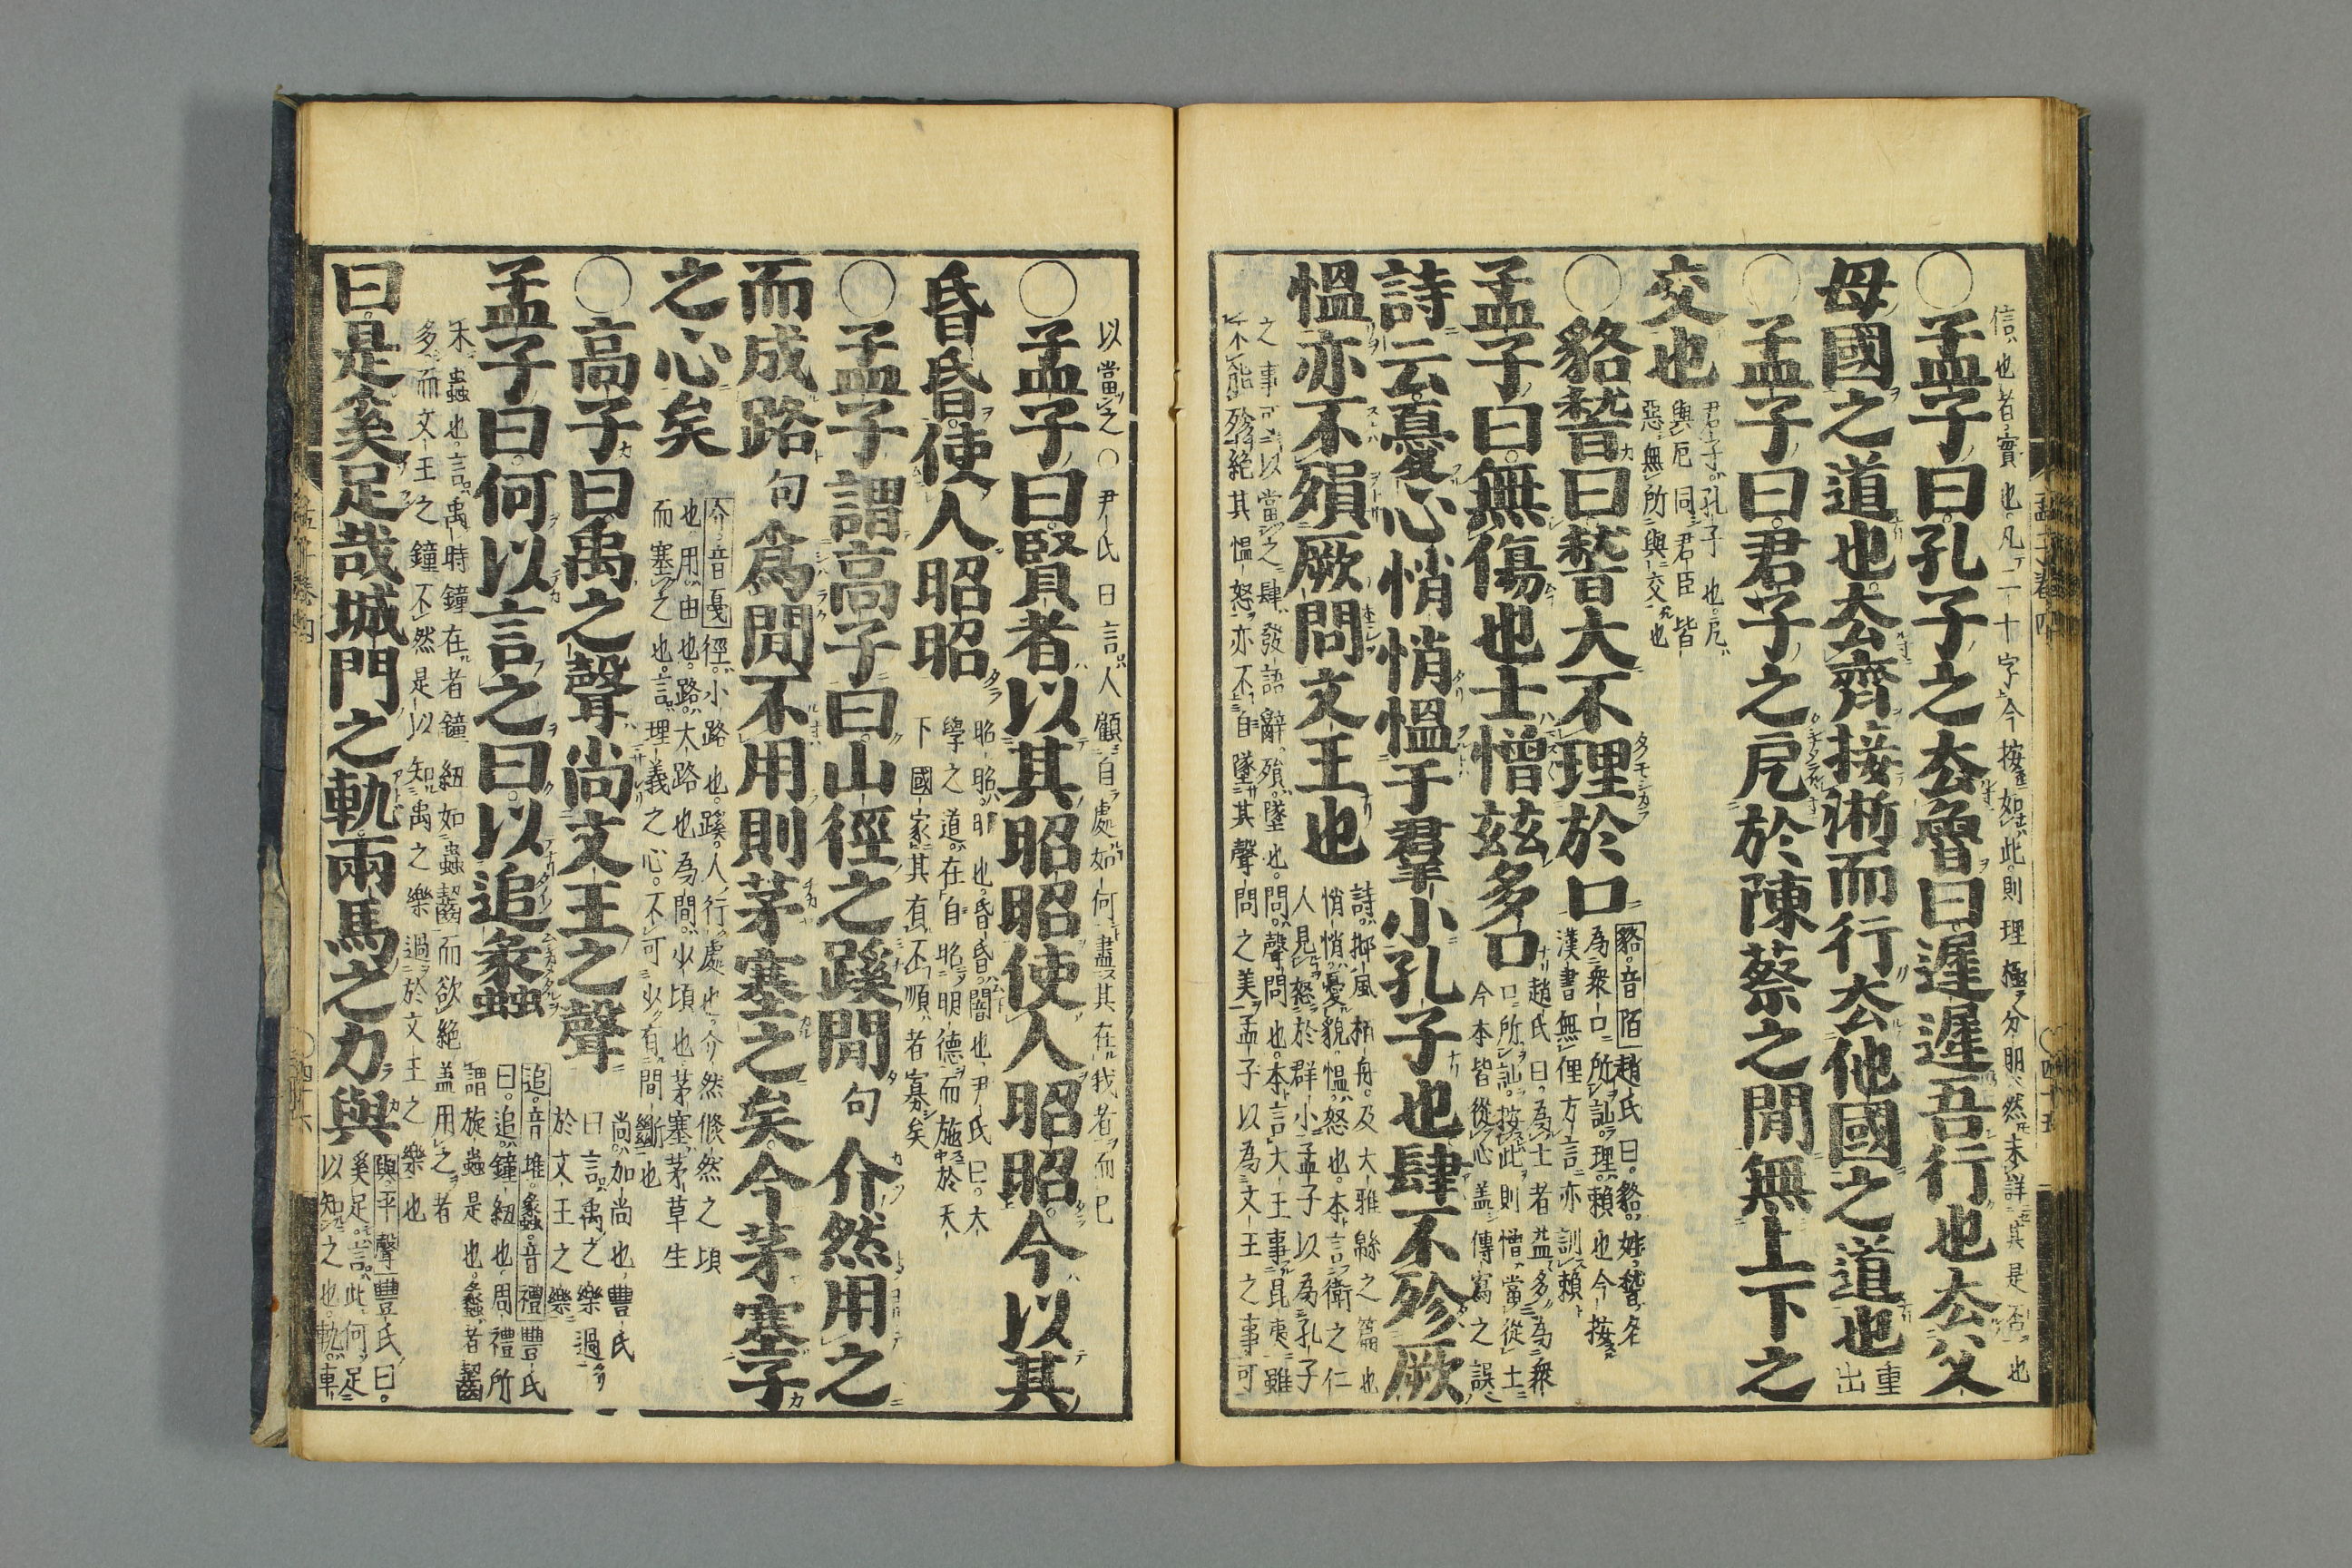 信也者實也凡二十字今按如此則理極分明然未詳其是否也
○孟子曰孔子之去魯曰遲遲吾行也去父
母國之道也去齊接淅而行去他國之道也
重
出
○孟子曰君子之戹於陳蔡之閒無上下之
交也
君子孔子也戹
與厄同君臣皆
惡無所與交也
○貉稽曰稽大不理於口
貉音陌趙氏曰貉姓稽名
為衆口所訕理賴也今按
漢書無俚方言亦訓賴
孟子曰無傷也士憎茲多口
趙氏曰為士者益多為衆
口所訕按此則憎當從土
今本皆從心蓋傳寫之誤
詩云憂心悄悄慍于羣小孔子也肆不殄厥
慍亦不殞厥問文王也
詩邶風柏舟及大雅緜之篇也
悄悄憂貌慍怒也本言衛之仁
人見怒於群小孟子以為孔子
之事可以當之肆發語辭殞墜也問聲問也本言大王事昆夷雖
不能殄絕其慍怒亦不自墜其聲問之美孟子以為文王之事可
孟子卷四
四十五
以當之○尹氏曰言人顧自處如何盡其在我者而已
○孟子曰賢者以其昭昭使人昭昭今以其
昏昏使人昭昭
昭昭明也昏昏闇也尹氏曰大
學之道在自昭明德而施於天
下國家其有不順者寡矣
○孟子謂高子曰山徑之蹊閒句介然用之
而成路句爲閒不用則茅塞之矣今茅塞子
之心矣
介音戛徑小路也蹊人行處也介然倏然之頃
也用由也路大路也為間少頃也茅塞茅草生
而塞之也言理義之心不可少有間斷也
○高子曰禹之聲尚文王之聲
尚加尚也豐氏
曰言禹之樂過
於文王之樂
孟子曰何以言之曰以追蠡
追音堆蠡音禮豐氏
曰追鐘紐也周禮所
謂旋蟲是也蠡者齧
木蟲也言禹時鐘在者鐘紐如蟲齧而欲絕蓋用之者
多而文王之鐘不然是以知禹之樂過於文王之樂也
曰是奚足哉城門之軌兩馬之力與
與平聲豐氏曰
奚足言此何足
以知之也軌車